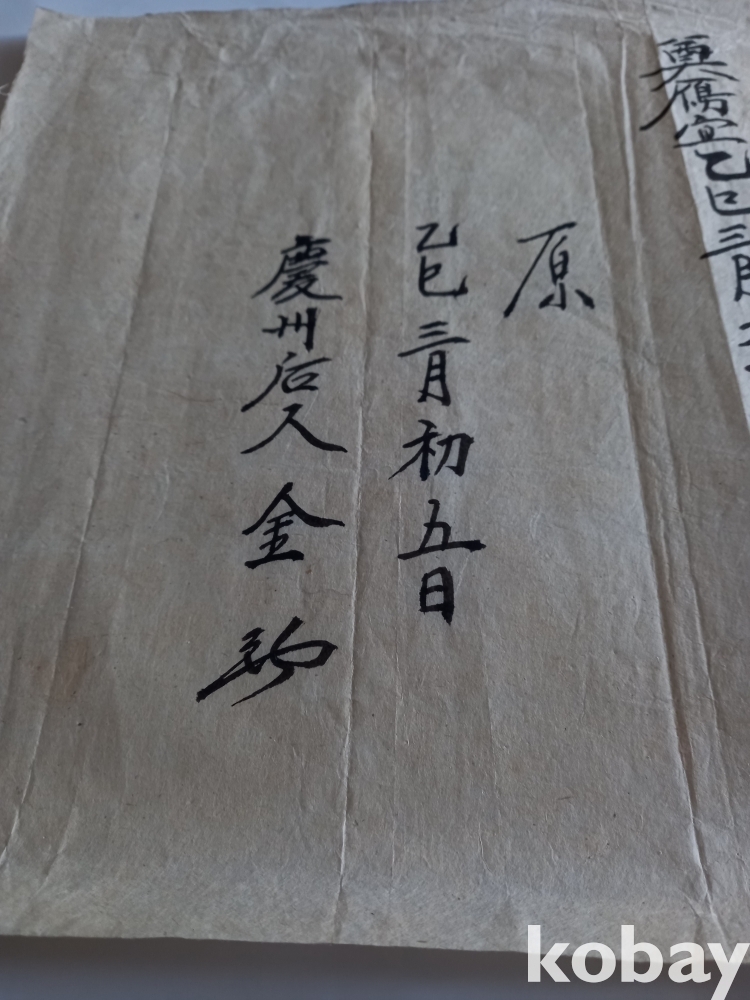 奠鴈宜乙巳三月
原
乙巳三月初五日
慶州后人金
kobay